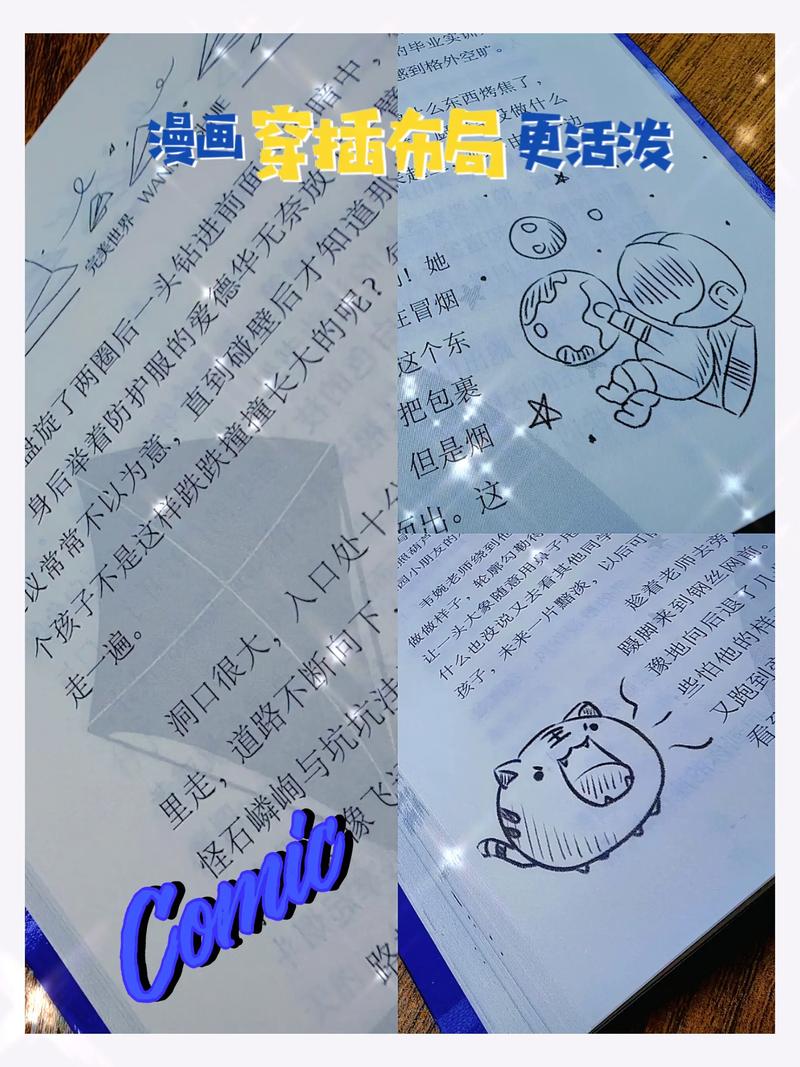 漫画穿插布局更活泼
完美世界 WAN
暗中，
盘旋了两圈后一头钻进前面
身后举着防护服的爱德华无奈放
以常常不以为意，直到碰壁后才知道那
个孩子不是这样跌跌撞撞长大的呢？
走一遍。
洞口很大，入口处十分
里走，道路不断向下，
怪石嶙峋与坑坑洼
像飞
路
Comic
的毕业实训
感到格外空旷。
什么东西烤焦了，
没做什么
！她
在冒烟
这个东
把包裹
但是烟
而出。这
园小朋友的
韦婉老师绕到他
做做样子，轮廓勾勒得
让一头大象随意用鼻子
什么也没说又去看其他同学
孩子，未来一片黯淡，以后可
趁着老师去旁
蹑脚来到钢丝网前。
豫地向后退了几
些怕他的样
又跑到
看
王